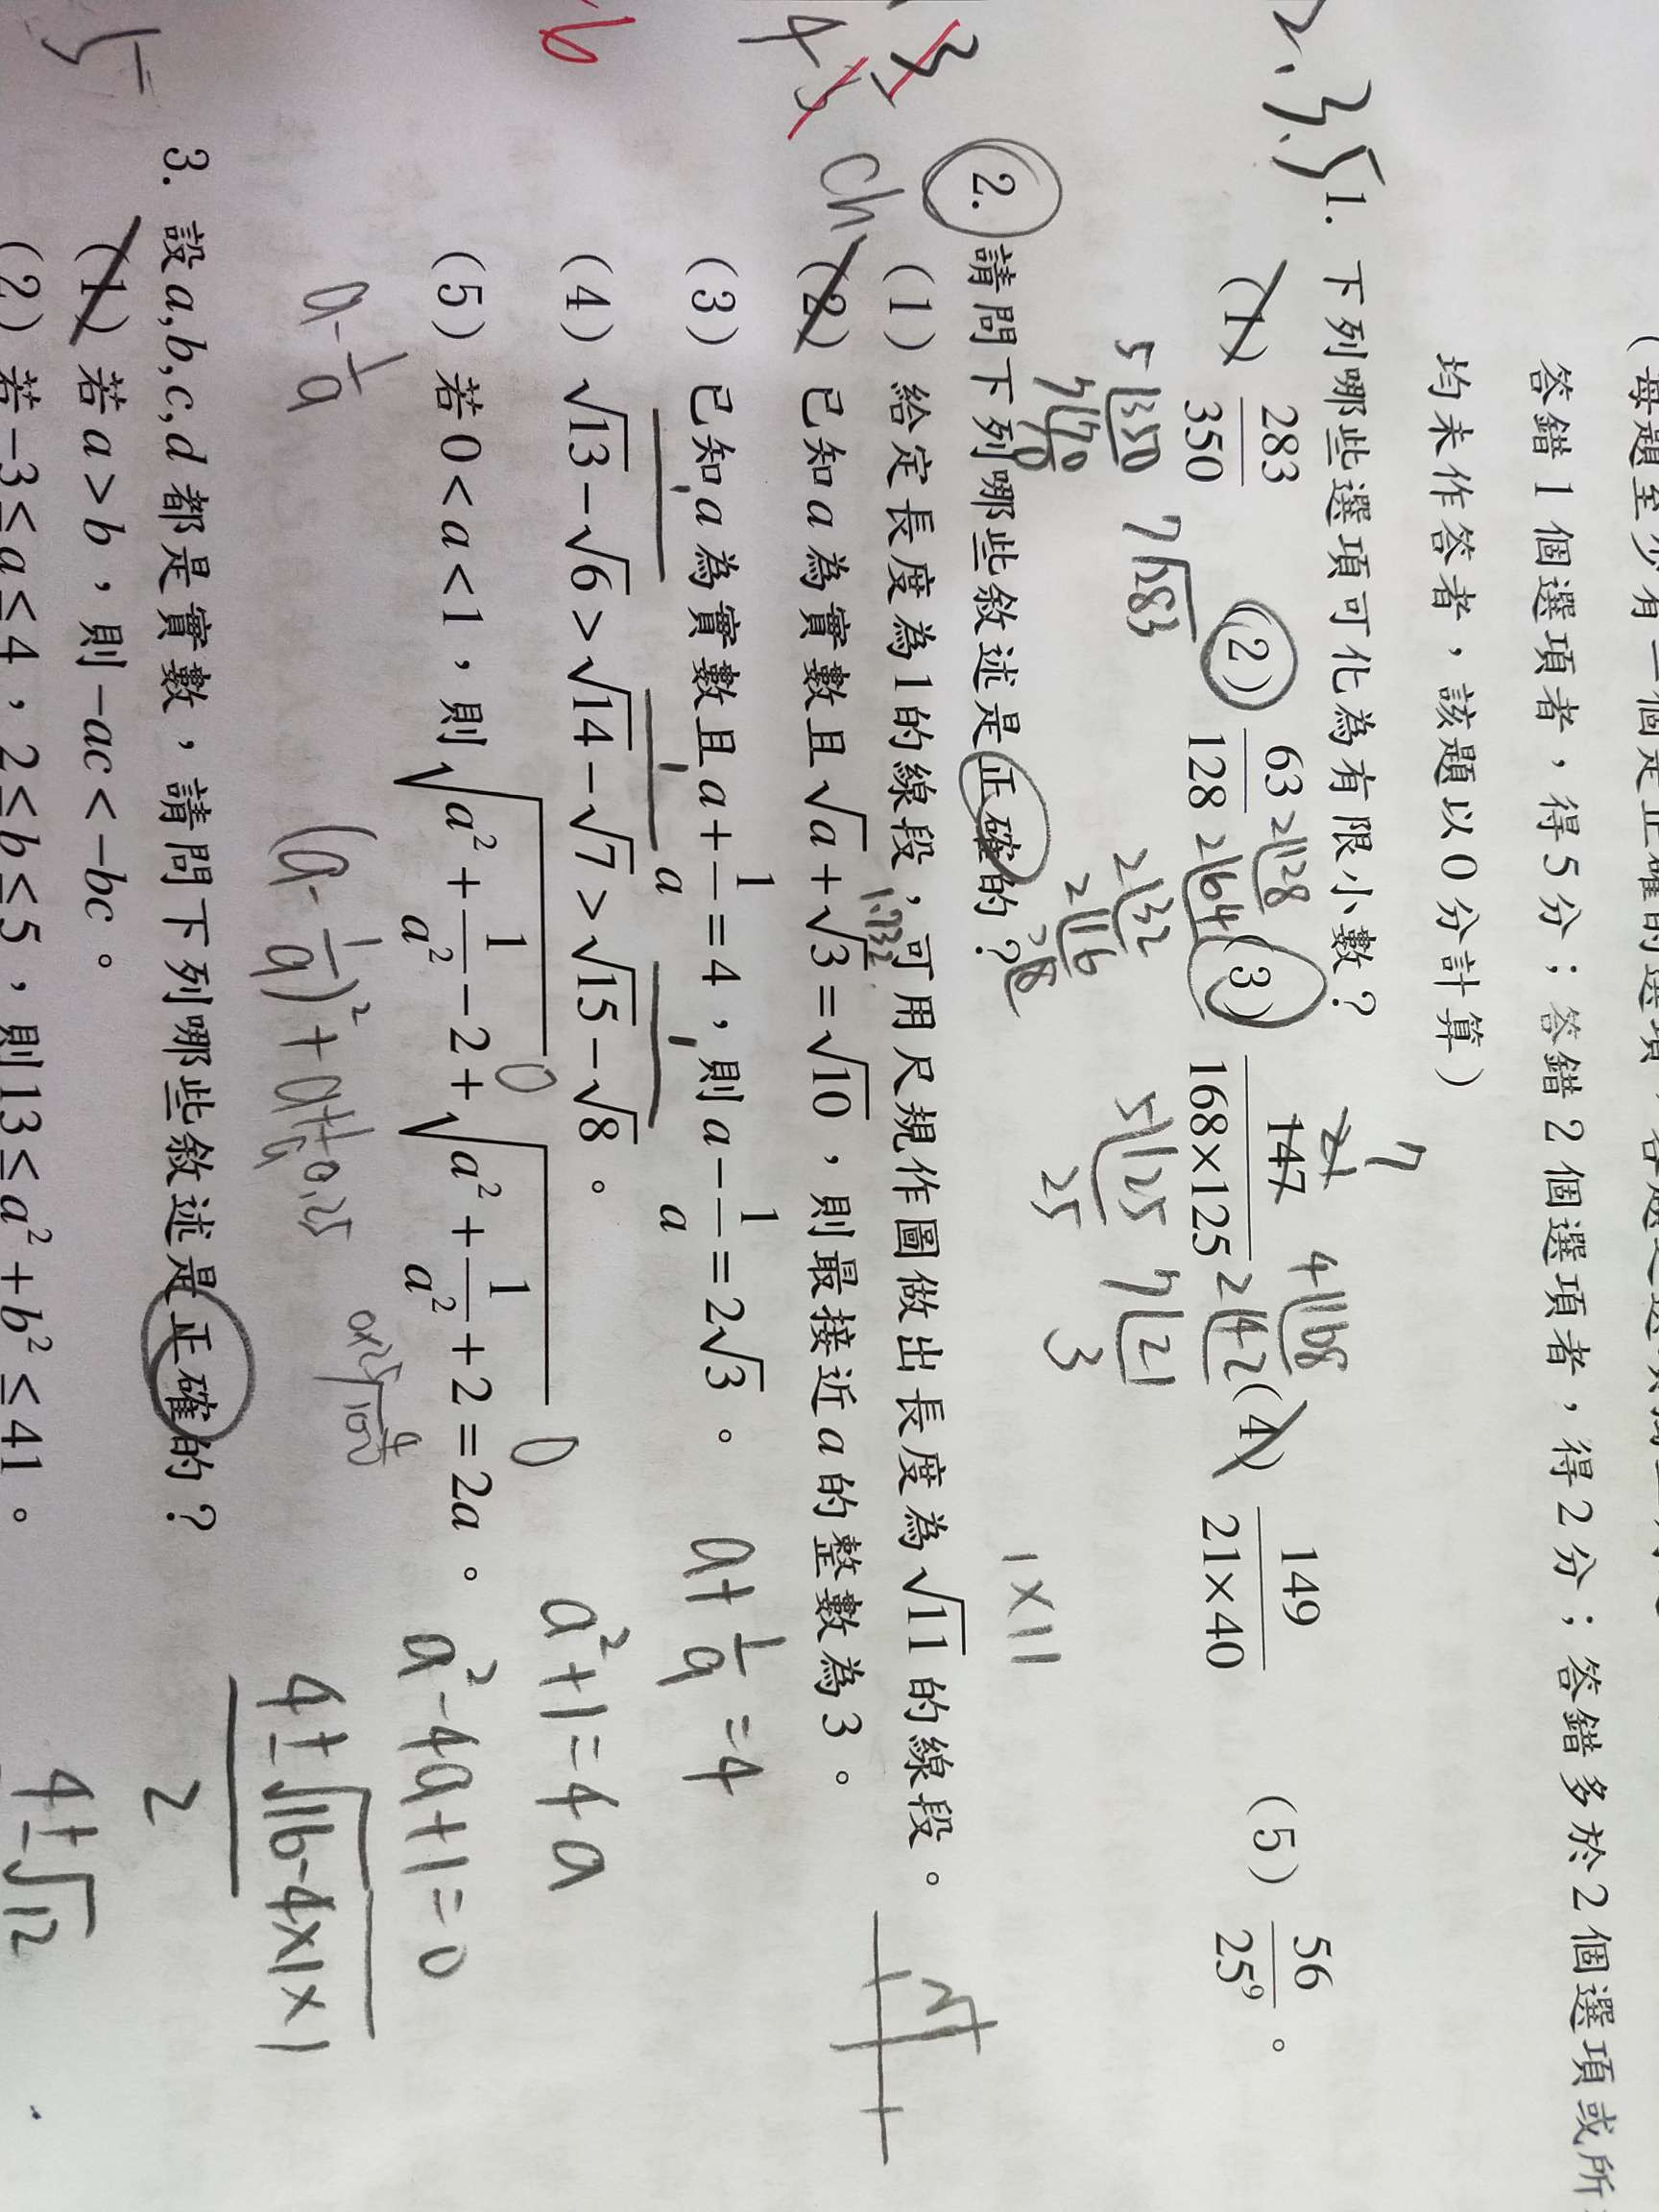 (每題至少有一個是正確的選項,
答錯1個選項者,得5分;答錯2個選項者,得2分;答錯多於2個選項或所
均未作答者,該題以0分計算)
2.3.5 1. 下列哪些選項可化為有限小數?
(1) 283/350 (2) 63/128 (3) 147/(168×125) (4) 149/(21×40) (5) 56/25⁹。
21 7
2|128
2|64
2|32
2|16
4|168
2|42
7|21
3
5|350
7|70
7|283
5|125
25
1×11
2. 請問下列哪些敘述是正確的?
(1) 給定長度為1的線段,可用尺規作圖做出長度為√11的線段。
1.732
(2) 已知a為實數且√a+√3=√10,則最接近a的整數為3。
(3) 已知a為實數且a+1/a=4,則a-1/a=2√3。
a+1/a=4
(4) √13-√6>√14-√7>√15-√8。
a²+1=4a
(5) 若0<a<1,則√(a²+1/a²-2)+√(a²+1/a²+2)=2a。
a²-4a+1=0
a-1/a
4±√16-4×1×1
2
3. 設a,b,c,d都是實數,請問下列哪些敘述是正確的?
(1) 若a>b,則-ac<-bc。
4±√12
(2) 若-3≤a≤4,2≤b≤5,則13≤a²+b²≤41。